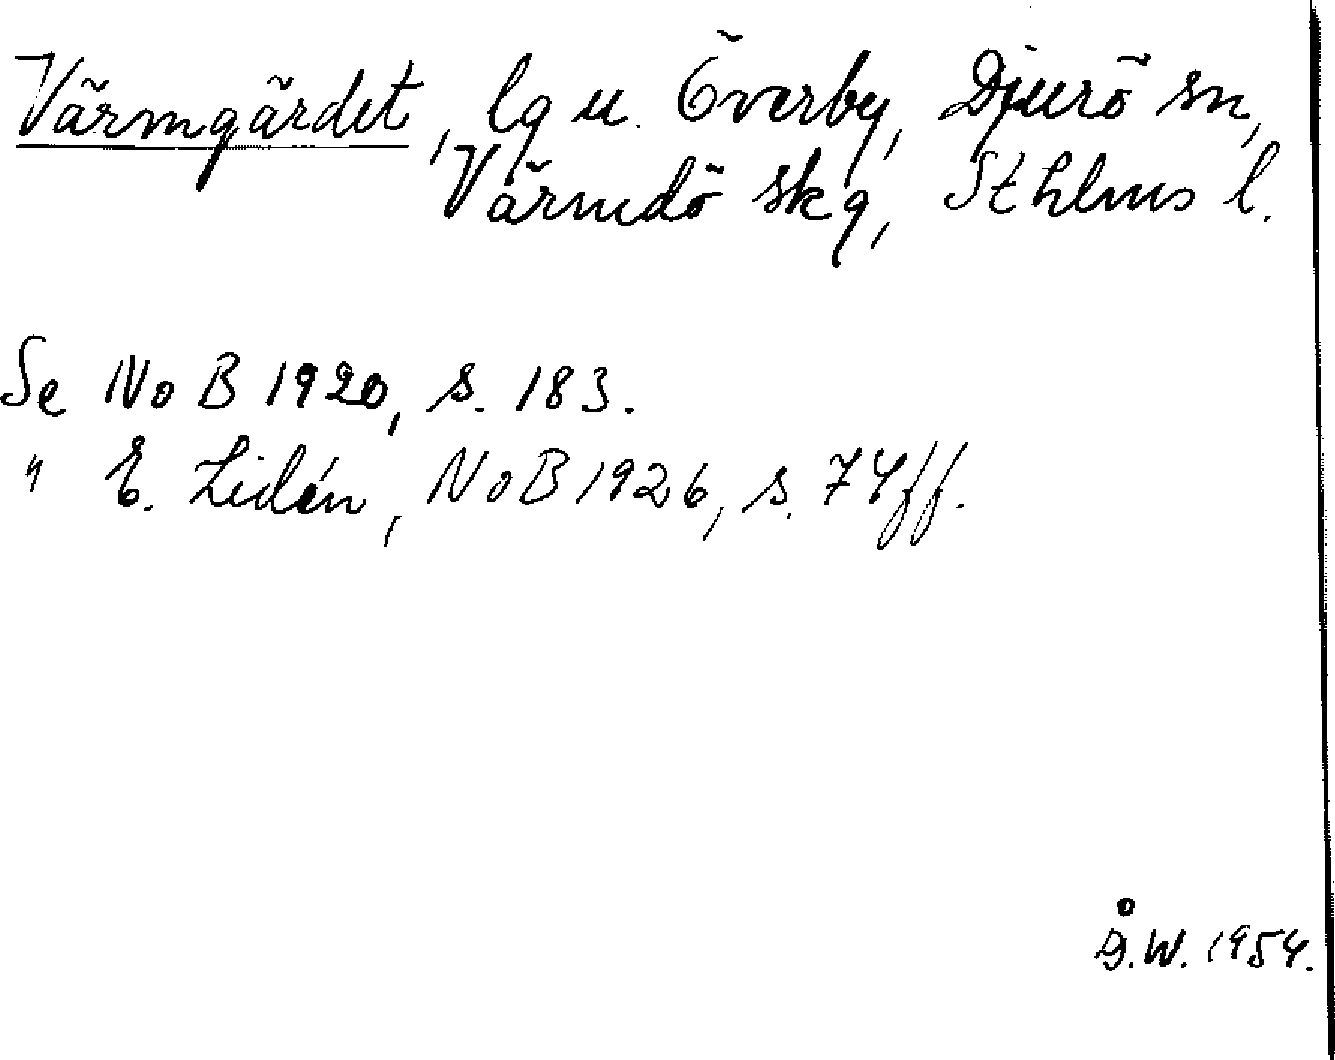 Värmgärdet, lg u. Överby, Djurö sn,
Värmdö skg, Sthlms l.
Se NoB 1920, s. 183.
" E. Lidén, NoB 1926, s. 74ff.
Å.W. 1954.